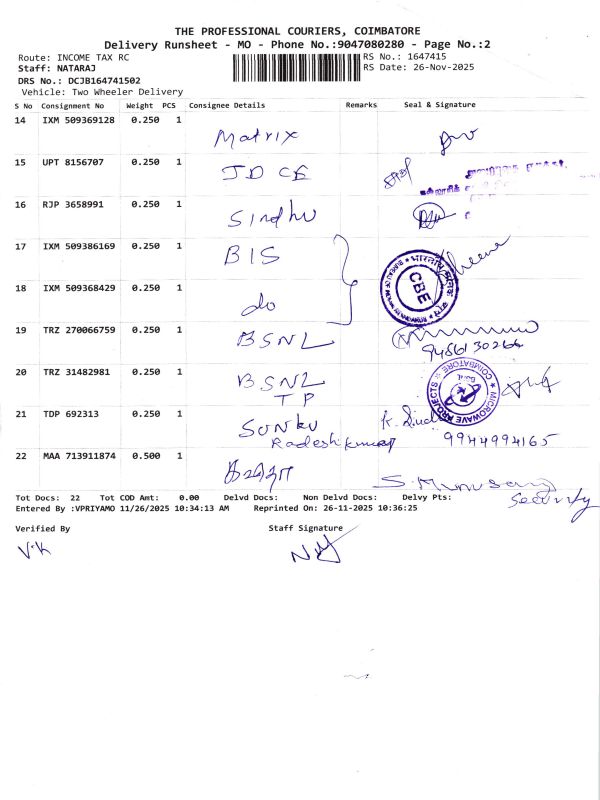 THE PROFESSIONAL COURIERS, COIMBATORE
Delivery Runsheet - MO - Phone No.:9047080280 - Page No.:2
Route: INCOME TAX RC
RS No.: 1647415
Staff: NATARAJ
RS Date: 26-Nov-2025
DRS No.: DCJB164741502
Vehicle: Two Wheeler Delivery
S No Consignment No Weight PCS Consignee Details Remarks Seal & Signature
14 IXM 509369128 0.250 1
Matrix
15 UPT 8156707 0.250 1
JD CE
16 RJP 3658991 0.250 1
Sindhu
17 IXM 509386169 0.250 1
BIS
CBE
18 IXM 509368429 0.250 1
do
19 TRZ 270066759 0.250 1
BSNL
9486130266
20 TRZ 31482981 0.250 1
BSNL
TP
MICROWAVE PROJECTS
COIMBATORE
21 TDP 692313 0.250 1
9944994165
22 MAA 713911874 0.500 1
Security
Tot Docs: 22 Tot COD Amt: 0.00 Delvd Docs: Non Delvd Docs: Delvy Pts:
Entered By :VPRIYAMO 11/26/2025 10:34:13 AM Reprinted On: 26-11-2025 10:36:25
Verified By Staff Signature
V.K